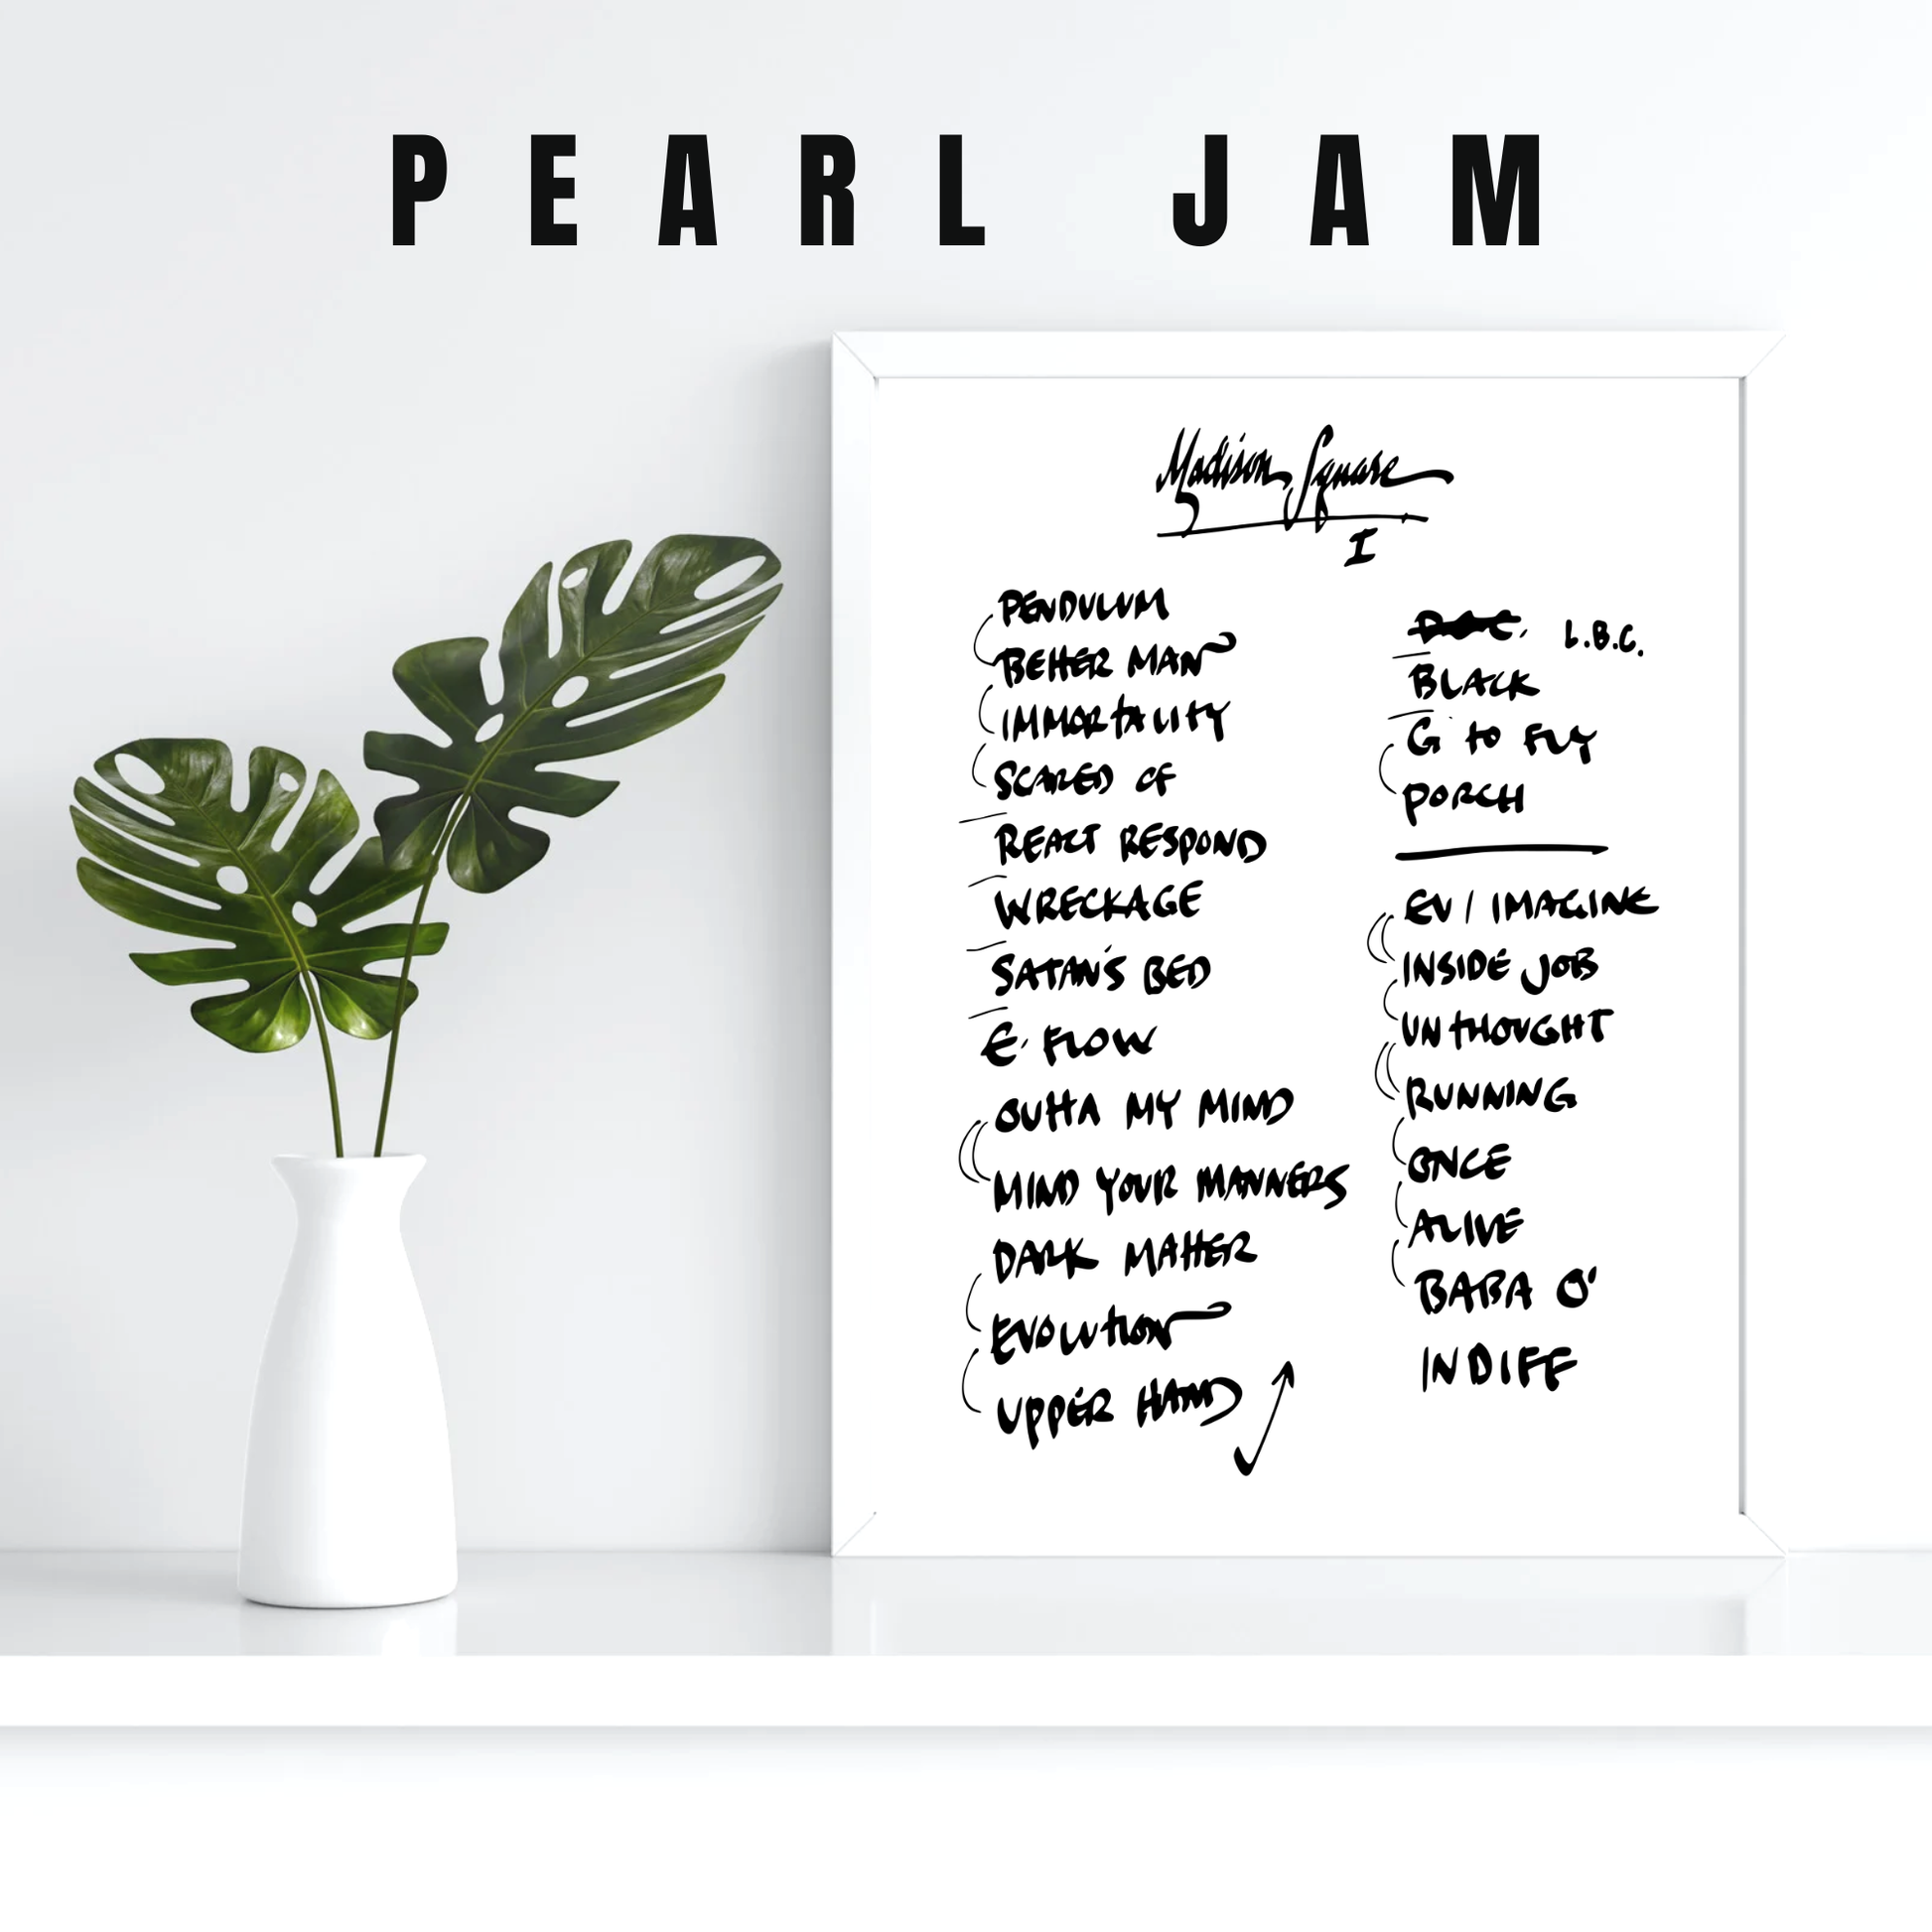 PEARL JAM
Madison Square
I
PENDULUM
BETTER MAN
IMMORTALITY
SCARED OF
REACT RESPOND
WRECKAGE
SATAN'S BED
E. FLOW
OUTTA MY MIND
MIND YOUR MANNERS
DARK MATTER
EVOLUTION
UPPER HAND
L.B.C.
BLACK
G. TO FLY
PORCH
EV / IMAGINE
INSIDE JOB
UNTHOUGHT
RUNNING
ONCE
ALIVE
BABA O'
INDIFF